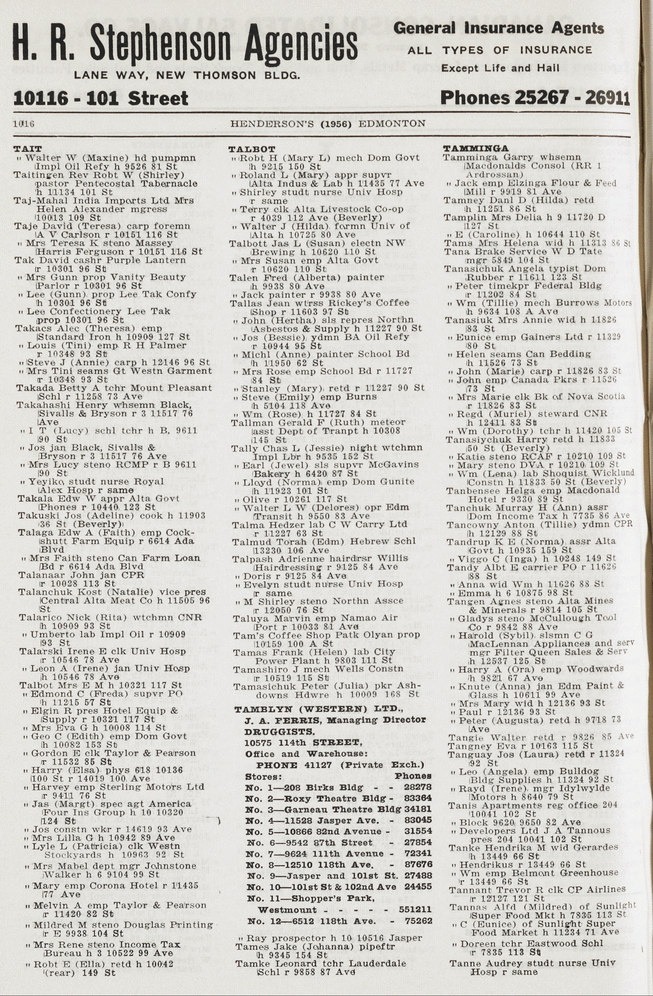 H. R. Stephenson Agencies
LANE WAY, NEW THOMSON BLDG.
10116 - 101 Street
General Insurance Agents
ALL TYPES OF INSURANCE
Except Life and Hail
Phones 25267 - 26911
1016
HENDERSON'S (1956) EDMONTON
TAIT
" Walter W (Maxine) hd pumpmn
Impl Oil Refy h 9526 81 St
Taitingen Rev Robt W (Shirley)
pastor Pentecostal Tabernacle
h 11134 101 St
Taj-Mahal India Imports Ltd Mrs
Helen Alexander mgress
10013 109 St
Taje David (Teresa) carp foremn
A V Carlson r 10151 116 St
" Mrs Teresa K steno Massey
Harris Ferguson r 10151 116 St
Tak David cashr Purple Lantern
r 10301 96 St
" Mrs Gunn prop Vanity Beauty
Parlor r 10301 96 St
" Lee (Gunn) prop Lee Tak Confy
h 10301 96 St
" Lee Confectionery Lee Tak
prop 10301 96 St
Takacs Alec (Theresa) emp
Standard Iron h 10909 127 St
" Louis (Tini) emp R H Palmer
r 10348 93 St
" Steve J (Annie) carp h 12146 96 St
" Mrs Tini seams Gt Westn Garment
r 10348 93 St
Takada Betty A tchr Mount Pleasant
Schl r 11258 73 Ave
Takahashi Henry whsemn Black,
Sivalls & Bryson r 3 11517 76
Ave
" I T (Lucy) schl tchr h B, 9611
90 St
" Jos jan Black, Sivalls &
Bryson r 3 11517 76 Ave
" Mrs Lucy steno RCMP r B 9611
90 St
" Yeyiko studt nurse Royal
Alex Hosp r same
Takala Edw W appr Alta Govt
Phones r 10440 123 St
Takuski Jos (Adeline) cook h 11903
36 St (Beverly)
Talaga Edw A (Faith) emp Cock-
shutt Farm Equip r 6614 Ada
Blvd
" Mrs Faith steno Can Farm Loan
Bd r 6614 Ada Blvd
Talanaar John jan CPR
r 10028 113 St
Talanchuk Kost (Natalie) vice pres
Central Alta Meat Co h 11505 96
St
Talarico Nick (Rita) wtchmn CNR
h 10909 93 St
" Umberto lab Impl Oil r 10909
93 St
Talarski Irene E clk Univ Hosp
r 10546 78 Ave
" Leon A (Irene) jan Univ Hosp
h 10546 78 Ave
Talbot Mrs E M h 10321 117 St
" Edmond C (Freda) supvr PO
h 11215 57 St
" Elgin R pres Hotel Equip &
Supply r 10321 117 St
" Mrs Eva G h 10008 114 St
" Geo C (Edith) emp Dom Govt
h 10082 153 St
" Gordon E clk Taylor & Pearson
r 11532 85 St
" Harry (Elsa) phys 618 10136
100 St r 14019 100 Ave
" Harvey emp Sterling Motors Ltd
r 9411 76 St
" Jas (Margt) spec agt America
Four Ins Group h 10 10320
124 St
" Jos constn wkr r 14619 93 Ave
" Mrs Lilla G h 10942 89 Ave
" Lyle L (Patricia) clk Westn
Stockyards h 10963 92 St
" Mrs Mabel dept mgr Johnstone
Walker h 6 9104 99 St
" Mary emp Corona Hotel r 11435
77 Ave
" Melvin A emp Taylor & Pearson
r 11420 82 St
" Mildred M steno Douglas Printing
r E 9938 104 St
" Mrs Rene steno Income Tax
Bureau h 3 10522 99 Ave
" Robt E (Ella) retd h 10042
(rear) 149 St
TALBOT
" Robt H (Mary L) mech Dom Govt
h 9215 150 St
" Roland L (Mary) appr supvr
Alta Indus & Lab h 11435 77 Ave
" Shirley studt nurse Univ Hosp
r same
" Terry clk Alta Livestock Co-op
r 4039 112 Ave (Beverly)
" Walter J (Hilda) formn Univ of
Alta h 10725 80 Ave
Talbott Jas L (Susan) electn NW
Brewing h 10620 110 St
" Mrs Susan emp Alta Govt
r 10620 110 St
Talen Fred (Alberta) painter
h 9938 80 Ave
" Jack painter r 9938 80 Ave
Tallas Jean wtrss Rickey's Coffee
Shop r 11603 97 St
" John (Hertha) sls repres Northn
Asbestos & Supply h 11227 90 St
" Jos (Bessie) ydmn BA Oil Refy
r 10944 95 St
" Michl (Anne) painter School Bd
h 11950 62 St
" Mrs Rose emp School Bd r 11727
84 St
" Stanley (Mary) retd r 11227 90 St
" Steve (Emily) emp Burns
h 5104 118 Ave
" Wm (Rose) h 11727 84 St
Tallman Gerald F (Ruth) meteor
asst Dept of Tranpt h 10308
145 St
Tally Chas L (Jessie) night wtchmn
Impl Lbr h 9535 152 St
" Earl (Jewel) sls supvr McGavins
Bakery h 6420 87 St
" Lloyd (Norma) emp Dom Gunite
h 11923 101 St
" Olive r 10261 117 St
" Walter L W (Delores) opr Edm
Transit h 9550 83 Ave
Talma Hedzer lab C W Carry Ltd
r 11227 63 St
Talmud Torah (Edm) Hebrew Schl
13230 106 Ave
Talpash Adrienne hairdrsr Willis
Hairdressing r 9125 84 Ave
" Doris r 9125 84 Ave
" Evelyn studt nurse Univ Hosp
r same
" M Shirley steno Northn Assce
r 12050 76 St
Taluya Marvin emp Namao Air
Port r 10033 81 Ave
Tam's Coffee Shop Patk Olyan prop
10159 100 A St
Tamas Frank (Helen) lab City
Power Plant h 9803 111 St
Tamashiro J mech Wells Constn
r 10519 115 St
Tamasichuk Peter (Julia) pkr Ash-
downs Hdwre h 10009 168 St
TAMBLYN (WESTERN) LTD.,
J. A. FERRIS, Managing Director
DRUGGISTS.
10575 114th STREET,
Office and Warehouse:
PHONE 41127 (Private Exch.)
Stores: Phones
No. 1—208 Birks Bldg - - 28278
No. 2—Roxy Theatre Bldg - 83364
No. 3—Garneau Theatre Bldg 34181
No. 4—11528 Jasper Ave. - 83045
No. 5—10866 82nd Avenue - 31554
No. 6—9542 87th Street - 27854
No. 7—9624 111th Avenue - 72341
No. 8—12510 118th Ave. - 87676
No. 9—Jasper and 101st St. 27488
No. 10—101st St & 102nd Ave 24455
No. 11—Shopper's Park,
Westmount - - - - - 551211
No. 12—6512 118th Ave. - 75262
" Ray prospector h 10 10516 Jasper
Tames Jake (Johanna) pipeftr
h 9345 154 St
Tamke Leonard tchr Lauderdale
Schl r 9858 87 Ave
TAMMINGA
Tamminga Garry whsemn
Macdonalds Consol (RR 1
Ardrossan)
" Jack emp Elzinga Flour & Feed
Mill r 9919 81 Ave
Tamney Danl D (Hilda) retd
h 11251 86 St
Tamplin Mrs Delia h 9 11720 D
127 St
" E (Caroline) h 10644 110 St
Tams Mrs Helena wid h 11313 86 St
Tana Brake Service W D Tate
mgr 5849 104 St
Tanasichuk Angela typist Dom
Rubber r 11611 123 St
" Peter timekpr Federal Bldg
r 11202 84 St
" Wm (Tillie) mech Burrows Motors
h 9634 108 A Ave
Tanasiuk Mrs Annie wid h 11826
83 St
" Eunice emp Gainers Ltd r 11329
80 St
" Helen seams Can Bedding
h 11526 73 St
" John (Marie) carp r 11826 83 St
" John emp Canada Pkrs r 11526
73 St
" Mrs Marie clk Bk of Nova Scotia
r 11826 83 St
" Regd (Muriel) steward CNR
h 12411 83 St
" Wm (Dorothy) tchr h 11420 105 St
Tanasiychuk Harry retd h 11833
50 St (Beverly)
" Katie steno RCAF r 10210 109 St
" Mary steno DVA r 10210 109 St
" Wm (Lena) lab Shoquist Wicklund
Constn h 11833 50 St (Beverly)
Tanbensee Helga emp Macdonald
Hotel r 9330 89 St
Tanchuk Murray H (Ann) assr
Dom Income Tax h 7735 86 Ave
Tancowny Anton (Tillie) ydmn CPR
h 12129 88 St
Tandrup K E (Norma) assr Alta
Govt h 10935 159 St
" Viggo C (Inga) h 10248 149 St
Tandy Albt E carrier PO r 11626
88 St
" Anna wid Wm h 11626 88 St
" Emma h 6 10875 98 St
Tangen Agnes steno Alta Mines
& Minerals r 9814 105 St
" Gladys steno McCullough Tool
Co r 9842 88 Ave
" Harold (Sybil) slsmn C G
MacLennan Appliances and serv
mgr Pilter Queen Sales & Serv
h 12537 125 St
" Harry A (Ora) emp Woodwards
h 9821 67 Ave
" Knute (Anna) jan Edm Paint &
Glass h 10611 99 Ave
" Mrs Mary wid h 12136 93 St
" Paul r 12136 93 St
" Peter (Augusta) retd h 9718 73
Ave
Tangie Walter retd r 9826 85 Ave
Tangney Eva r 10163 115 St
Tanguay Jos (Laura) retd r 11324
92 St
" Leo (Angela) emp Bulldog
Bldg Supplies h 11324 92 St
" Rayd (Irene) mgr Idylwylde
Motors h 8640 79 St
Tanis Apartments reg office 204
10041 102 St
" Block 9620, 9650 82 Ave
" Developers Ltd J A Tannous
pres 204 10041 102 St
Tanke Hendrika M wid Gerardes
h 13449 66 St
" Hendrikus r 13449 66 St
" Wm emp Belmont Greenhouse
r 13449 66 St
Tannant Trevor R clk CP Airlines
r 12127 121 St
Tannas Alfd (Mildred) of Sunlight
Super Food Mkt h 7835 113 St
" C (Eunice) of Sunlight Super
Food Market h 11234 71 Ave
" Doreen tchr Eastwood Schl
r 7835 113 St
Tanne Audrey studt nurse Univ
Hosp r same